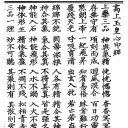 高上玉皇心印經
上藥三品　神與氣精　恍恍惚惚　杳杳冥冥
存無守有　頃刻而成　迴風混合　百日功靈
默朝上帝　一紀飛昇　知者易悟　昧者難行
履踐天光　呼吸育清　出玄入牝　若亡若存
綿綿不絕　固蒂深根　人各有精　精合其神
神合其氣　氣合體真　不得其真　皆是強名
神能入石　神能飛形　入水不溺　入火不焚
神依形生　精依氣盈　不凋不殘　松柏青青
三品一理　妙不可聽　其聚則有　其散則零